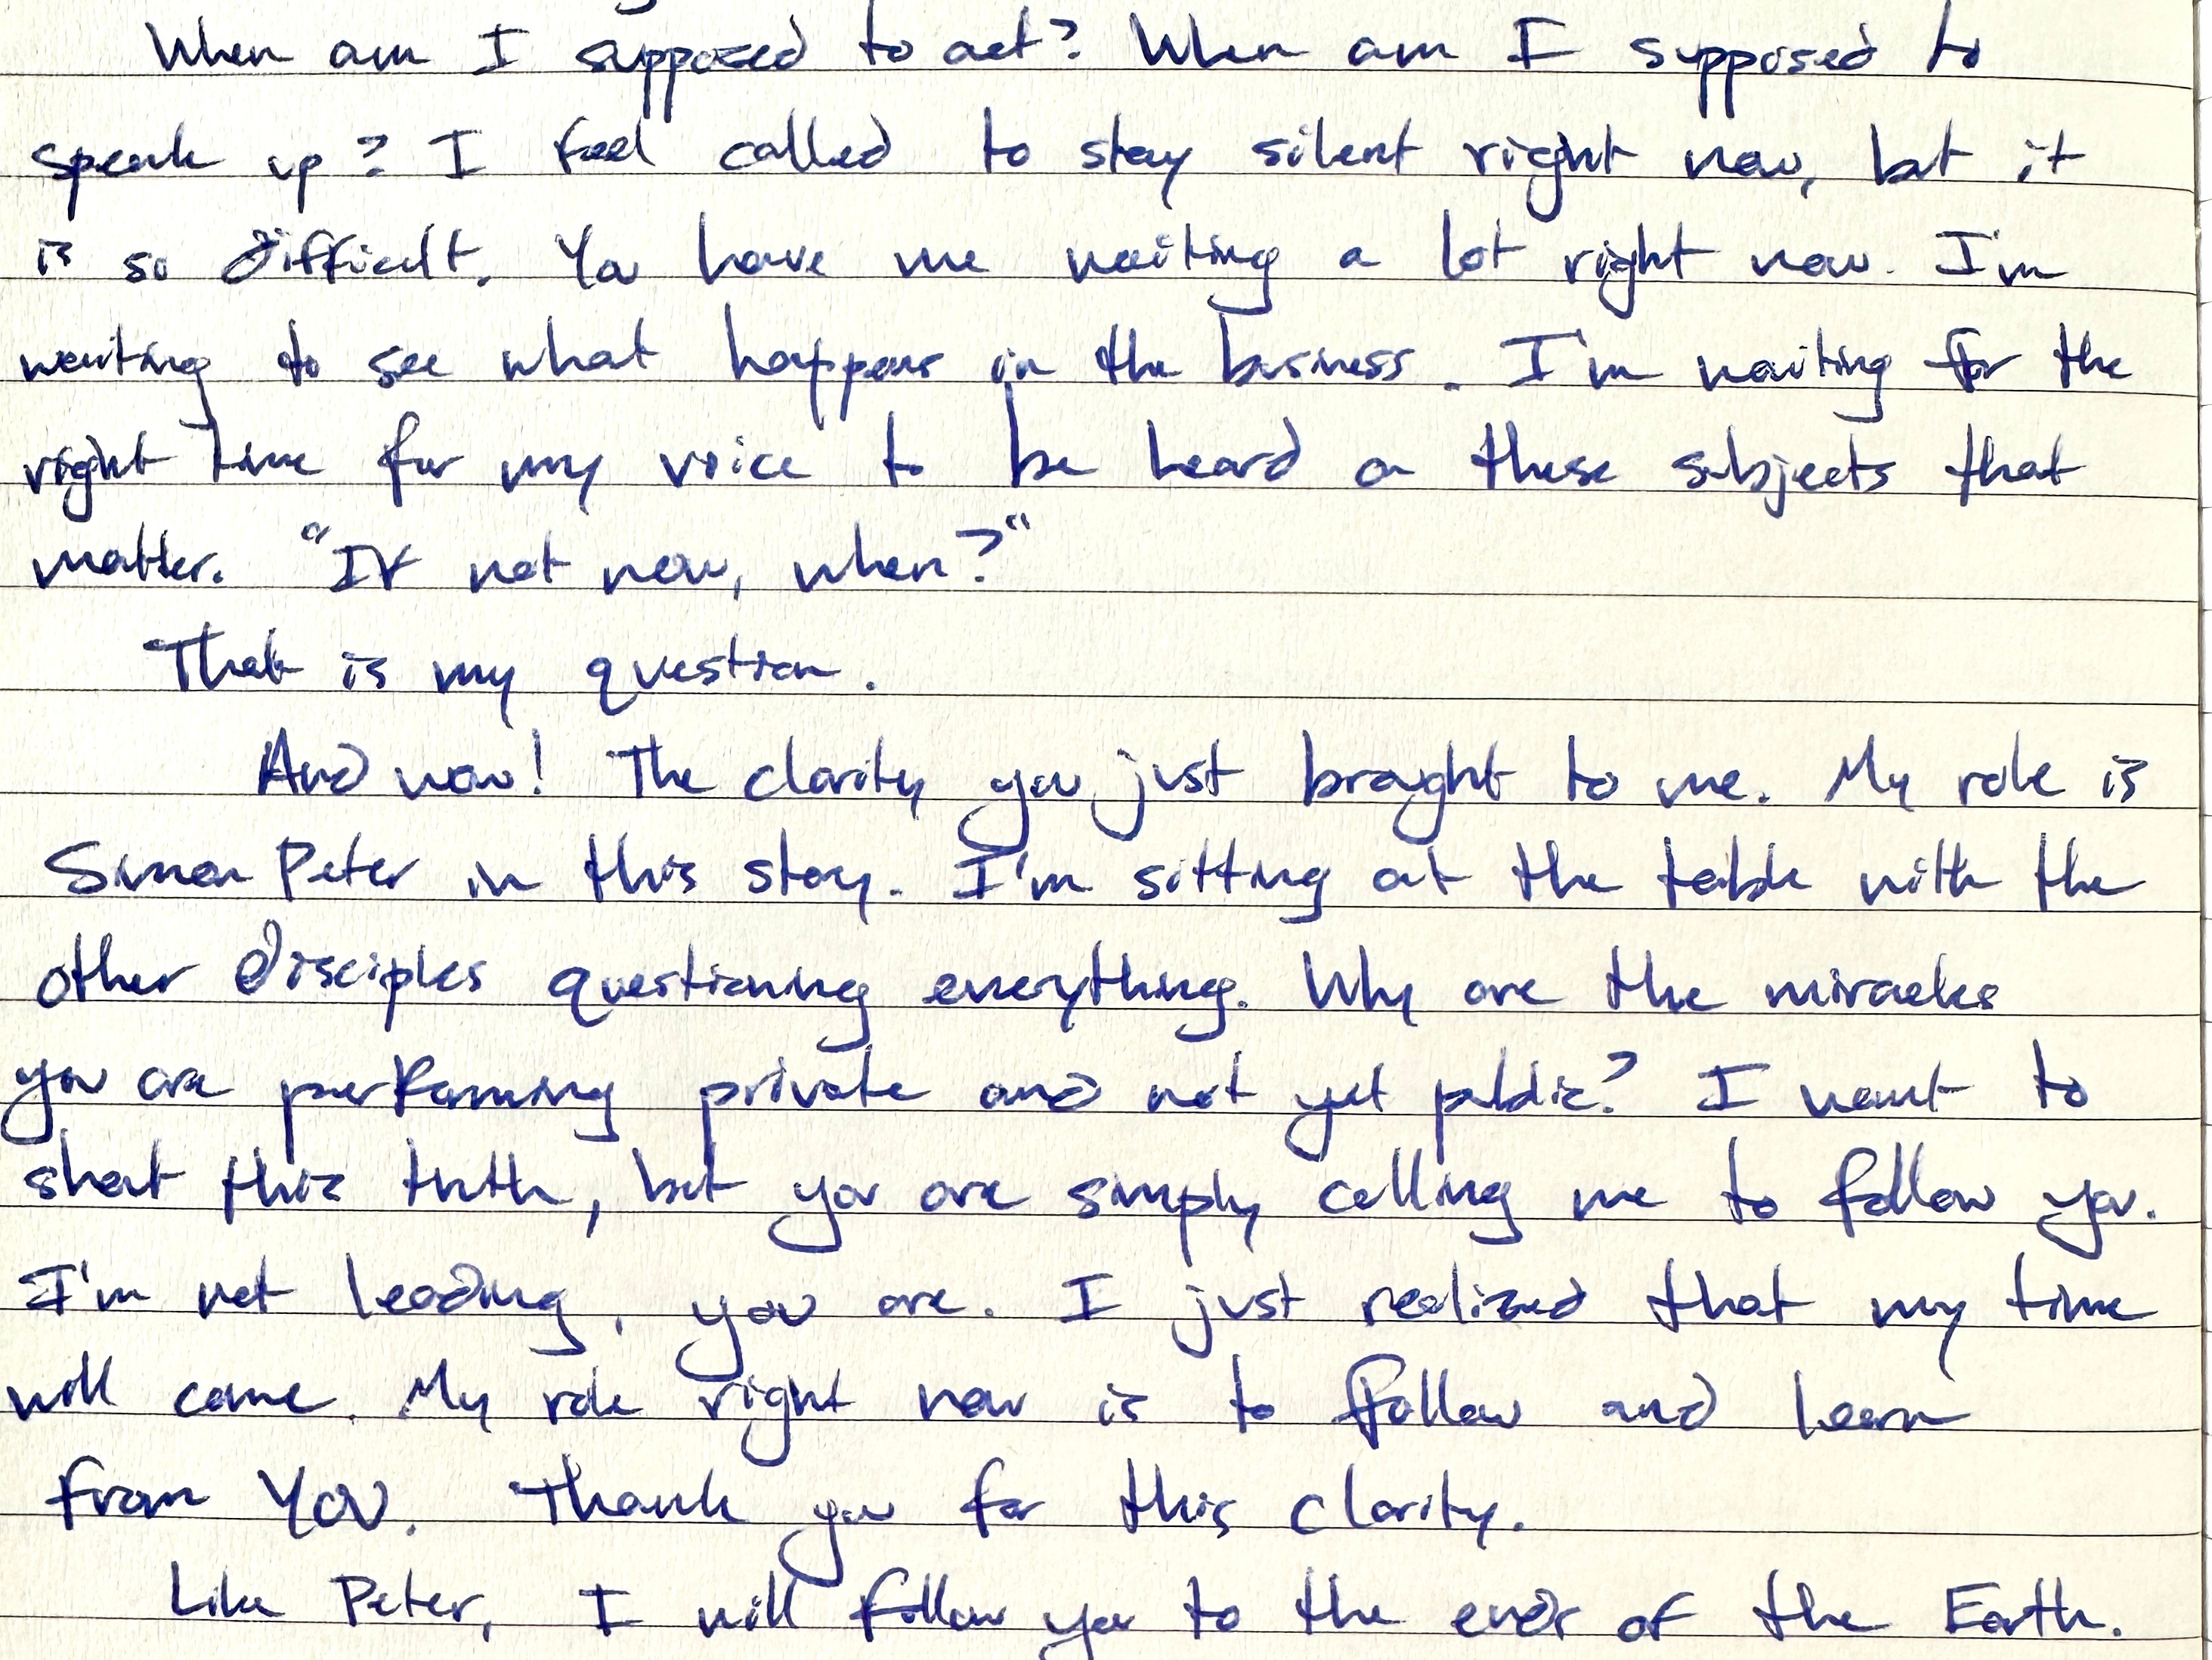 When am I supposed to act? When am I supposed to
speak up? I feel called to stay silent right now, but it
is so difficult. You have me waiting a lot right now. I'm
waiting to see what happens in the business. I'm waiting for the
right time for my voice to be heard on these subjects that
matter. "If not now, when?"
That is my question.
And now! The clarity you just brought to me. My role is
Simon Peter in this story. I'm sitting at the table with the
other disciples questioning everything. Why are the miracles
you are performing private and not yet public? I want to
shout this truth, but you are simply calling me to follow you.
I'm not leading, you are. I just realized that my time
will come. My role right now is to follow and learn
from YOU. Thank you for this clarity.
Like Peter, I will follow you to the ends of the Earth.